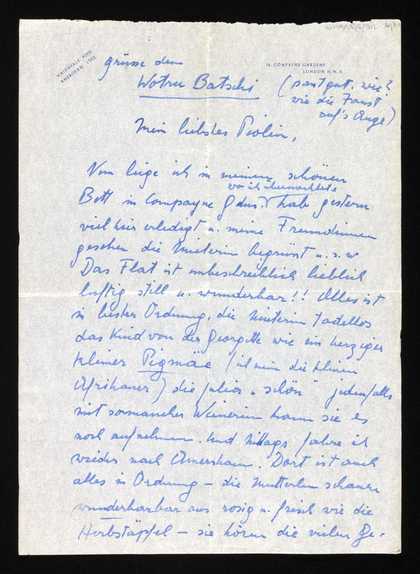 MAIDA VALE 7109
AMERSHAM 1102
14, COMPAYNE GARDENS
LONDON N.W.6
grüsse den
Wotru Batschi
(passt gut, wie?
wie die Faust
auf's Auge)
Mein liebstes
Nun liege ich in meinem schönen
wo ich übernachtete
Bett in Compayne Gdns. hab gestern
viel hier erledigt u. meine Freundinnen
gesehen die Mieterin begrüsst u.s.w
Das Flat ist unbeschreiblich lieblich
luftig still u. wunderbar!! Alles ist
in bester Ordnung, die Mieterin tadellos
das Kind von der Georgette wie ein herziger
kleiner Pigmäe (ich mein die kleinen
Afrikaner) die "schön" jedenfalls
mit so mancher kann sie es
noch aufnehmen. Und Mittags fahre ich
wieder nach Amersham. Dort ist auch
alles in Ordnung – die schauen
wunderbar aus rosig u. frisch wie die
Herbstäpfel – sie hören die vielen Ge-